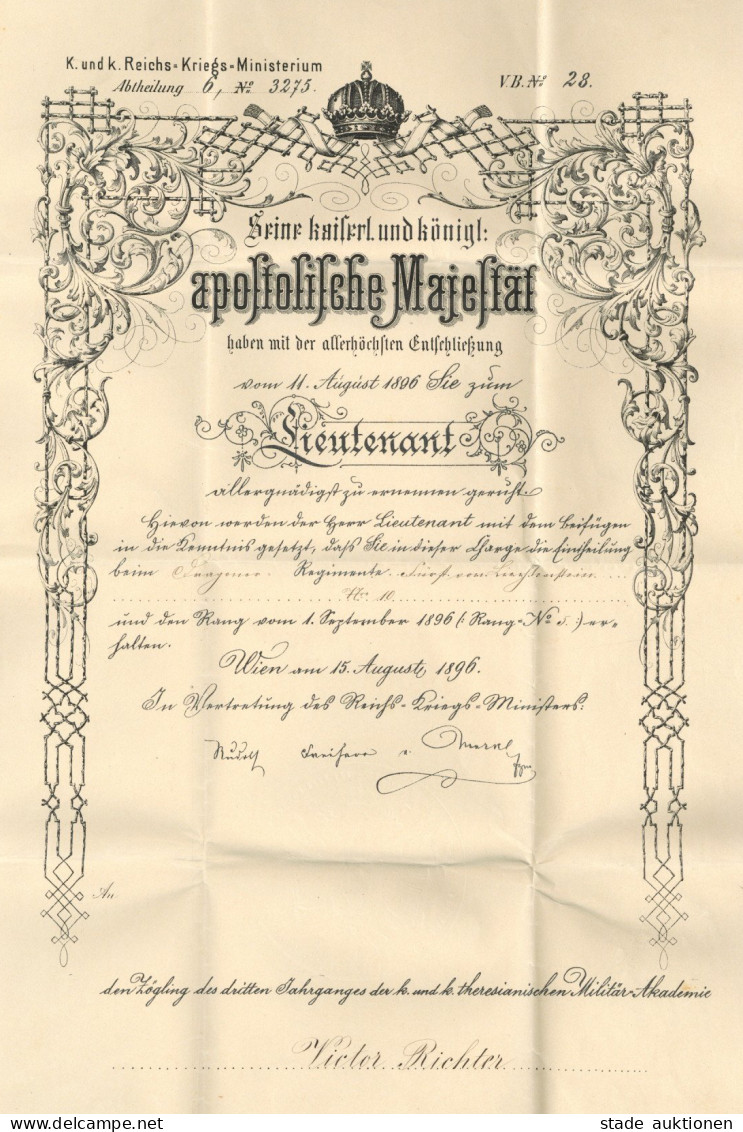 K. und k. Reichs-Kriegs-Ministerium
Abtheilung 6, No. 3275.
V.B. No. 28.
Seine kaiserl. und königl:
apostolische Majestät
haben mit der allerhöchsten Entschließung
vom 11. August 1896 Sie zum
Lieutenant
allergnädigst zu ernennen geruht.
Hievon werden der Herr Lieutenant mit dem Beifügen
in die Kenntnis gesetzt, dass Sie in dieser Charge die Eintheilung
beim Dragoner-Regimente Fürst von Liechtenstein
Nr 10
und den Rang vom 1. September 1896 (: Rang-No 5 :) er-
halten.
Wien am 15. August 1896.
In Vertretung des Reichs-Kriegs-Ministers:
Rudolf Freiherr v. Merkl
An
den Zögling des dritten Jahrganges der k. und k. theresianischen Militär-Akademie
Victor Richter
stade auktionen